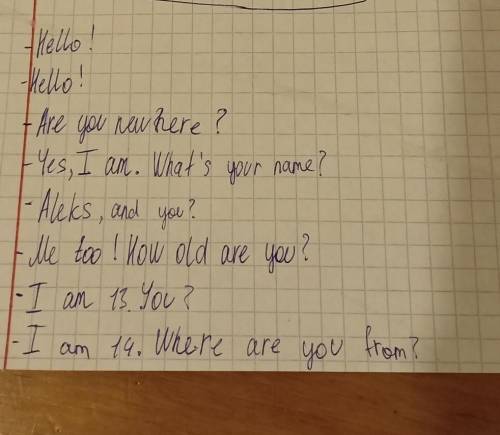 - Hello!
- Hello!
- Are you new here?
- Yes, I am. What's your name?
- Aleks, and you?
- Me too! How old are you?
- I am 13. You?
- I am 14. Where are you from?